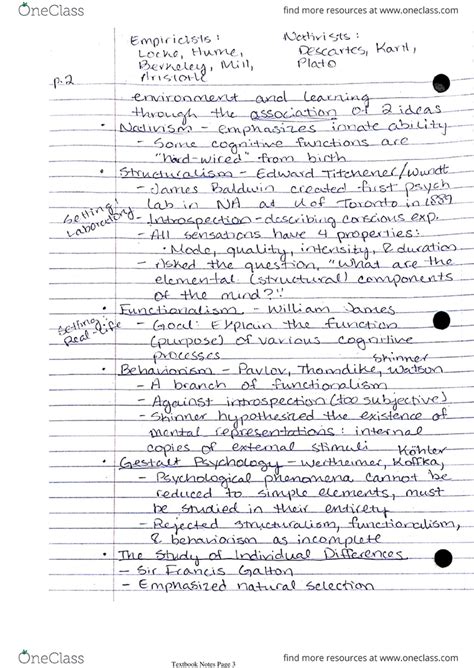 OneClass
find more resources at www.oneclass.com
Empiricists:
Locke, Hume,
Berkeley, Mill,
Aristotle
Nativists:
Descartes, Kant,
Plato
p.2
environment and learning
through the association of 2 ideas
• Nativism - emphasizes innate ability
- Some cognitive functions are
"hard-wired" from birth
• Structuralism - Edward Titchener/Wundt
- James Baldwin created first psych
lab in NA at U of Toronto in 1889
Setting:
Laboratory
- Introspection - describing conscious exp.
- All sensations have 4 properties:
• Mode, quality, intensity, & duration
- risked the question, "What are the
elemental (structural) components
of the mind?"
• Functionalism - William James
Setting:
Real-life
- Goal: Explain the function
(purpose) of various cognitive
processes
Skinner
• Behaviorism - Pavlov, Thorndike, Watson
- A branch of functionalism
- Against introspection (too subjective)
- Skinner hypothesized the existence of
mental representations: internal
copies of external stimuli
Köhler
• Gestalt Psychology - Wertheimer, Koffka,
- Psychological phenomena cannot be
reduced to simple elements, must
be studied in their entirety
- Rejected structuralism, functionalism,
& behaviorism as incomplete
• The Study of Individual Differences
- Sir Francis Galton
- Emphasized natural selection
OneClass
Textbook Notes Page 3
find more resources at www.oneclass.com